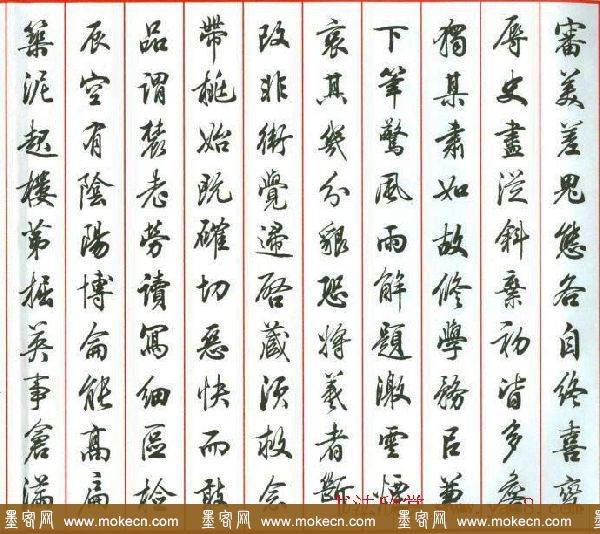 審美差異態各自終喜齊
辱史盡從斜棄初皆多
獨某肅如故修學務臣兼
下筆驚風雨解題激雲煙
衰其幾分貌恐將羲者斷
改非術覺遞啓藏須救念
帶桃始既確切惡快而敢
品謂裝老勞讀寫細區檢
灰空有陰陽博侖能高扁
築泥起樓第掘英事倉滿
墨客网 www.mokecn.com 墨客网 www.mokecn.com 墨客网 www.mokecn.com